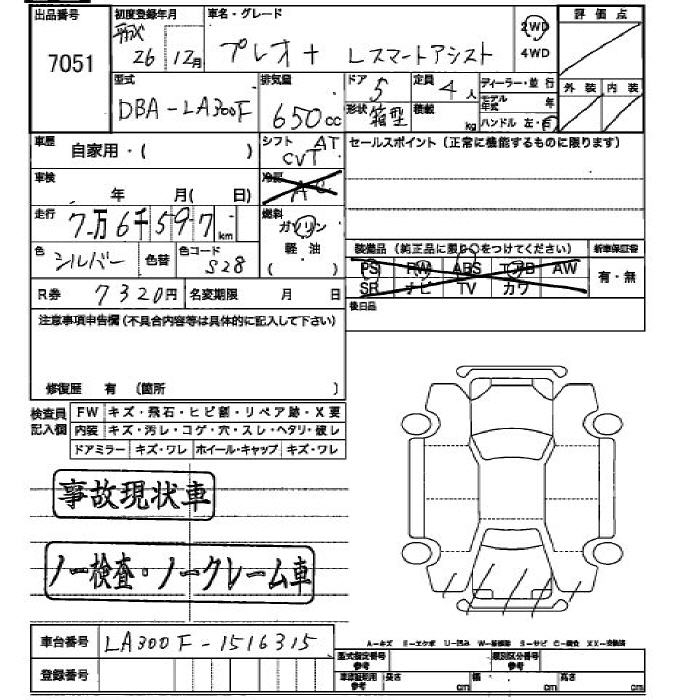 出品番号 初度登録年月 車名・グレード 2WD 評価点
7051 平成 26 12月 プレオ+ Lスマートアシスト 4WD
型式 排気量 ドア 5 定員 4人 ディーラー・並行 外装 内装
DBA-LA300F 650cc 形状 箱型 積載 kg モデル年式 年
ハンドル 左・右
車歴 自家用・( ) シフト AT CVT セールスポイント(正常に機能するものに限ります)
車検 年 月( 日) 冷房 AC
走行 7万6千597km 燃料 ガソリン
軽油
( )
色 シルバー 色替 色コード S28 装備品(純正品に限り○をつけてください) 新車保証書
PS PW ABS エアB AW 有・無
SR ナビ TV カワ
R券 7320円 名変期限 月 日 後日品
注意事項申告欄(不具合内容等は具体的に記入して下さい)
修復歴 有 (箇所 )
検査員 FW キズ・飛石・ヒビ割・リペア跡・X要
記入欄 内装 キズ・汚レ・コゲ・穴・スレ・ヘタリ・破レ
ドアミラー キズ・ワレ ホイール・キャップ キズ・ワレ
事故現状車
ノー検査・ノークレーム車
車台番号 LA300F-1516315
A－キズ E－エクボ U－凹み W－補修跡 S－サビ C－腐食 XX－交換済
型式指定番号 参考 類別区分番号 参考
登録番号 車庫証明用 参考 長さ cm 幅 cm 高さ cm